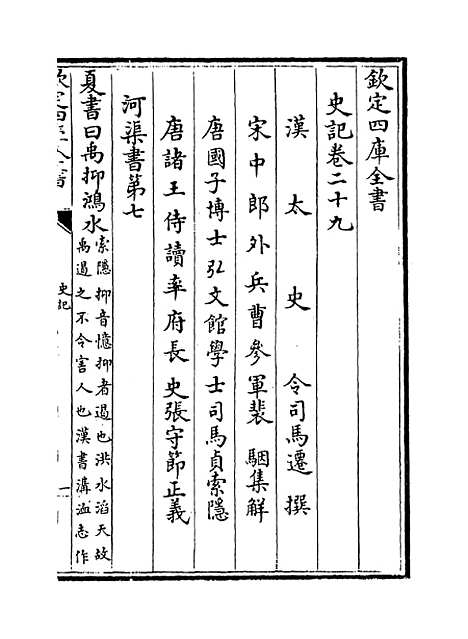 欽定四庫全書
史記卷二十九
漢太史令司馬遷撰
宋中郎外兵曹參軍裴駰集解
唐國子博士弘文館學士司馬貞索隱
唐諸王侍讀率府長史張守節正義
河渠書第七
夏書曰禹抑鴻水索隱抑音憶抑者遏也洪水滔天故
禹遏之不令害人也漢書溝洫志作
欽定四庫全書
史記
一